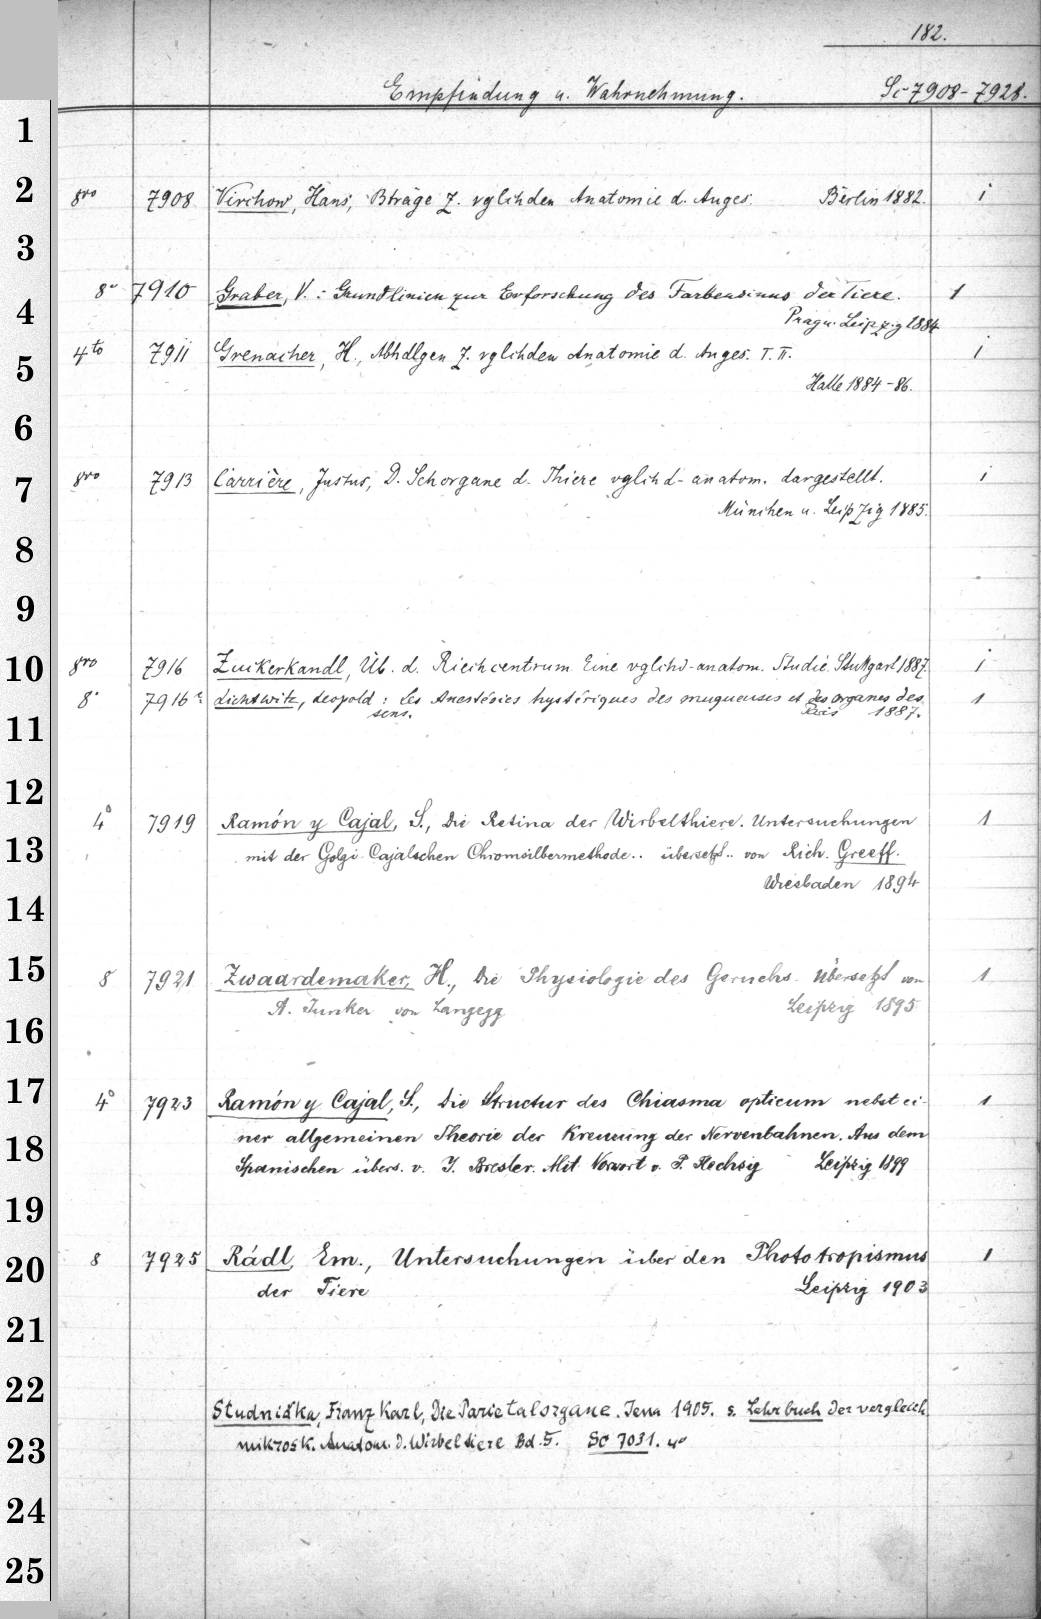 182.
Empfindung u. Wahrnehmung. Sc 7908-7928.
1
2 8vo 7908 Virchow, Hans, Bträge z. vglchden Anatomie d. Auges. Berlin 1882. 1
3
8° 7910 Graber, V.: Grundlinien zur Erforschung des Farbensinns der Tiere. 1
4 Prag u. Leipzig 1884
5 4to 7911 Grenacher, H., Abhdlgen z. vglchden Anatomie d. Auges. T. II. 1
Halle 1884-86.
6
7 8vo 7913 Carrière, Justus, D. Sehorgane d. Thiere vglchd-anatom. dargestellt. 1
München u. Leipzig 1885.
8
9
10 8vo 7916 Zuckerkandl, Üb. d. Riechcentrum Eine vglchd-anatom. Studie. Stuttgart 1887. 1
8° 7916a Lichtwitz, Leopold: Les Anestésies hystériques des muqueuses et des organes des 1
11 sens. Paris 1887.
12
4° 7919 Ramón y Cajal, S., Die Retina der Wirbelthiere. Untersuchungen 1
13 mit der Golgi-Cajalschen Chromsilbermethode.. übersetzt.. von Rich. Greeff.
Wiesbaden 1894
14
15 8 7921 Zwaardemaker, H., Die Physiologie des Geruchs. Übersetzt von 1
A. Junker von Langegg Leipzig 1895
16
17 4° 7923 Ramón y Cajal, S., Die Structur des Chiasma opticum nebst ei- 1
18 ner allgemeinen Theorie der Kreuzung der Nervenbahnen. Aus dem
Spanischen übers. v. J. Bresler. Mit Vorwort v. P. Flechsig Leipzig 1899
19
20 8 7925 Rádl, Em., Untersuchungen über den Phototropismus 1
der Tiere Leipzig 1903
21
22 Studnička, Franz Karl, Die Parietalorgane. Jena 1905. s. Lehrbuch der vergleich.
23 mikrosk. Anatom. d. Wirbeltiere Bd. 5. Sc 7031. 4°
24
25